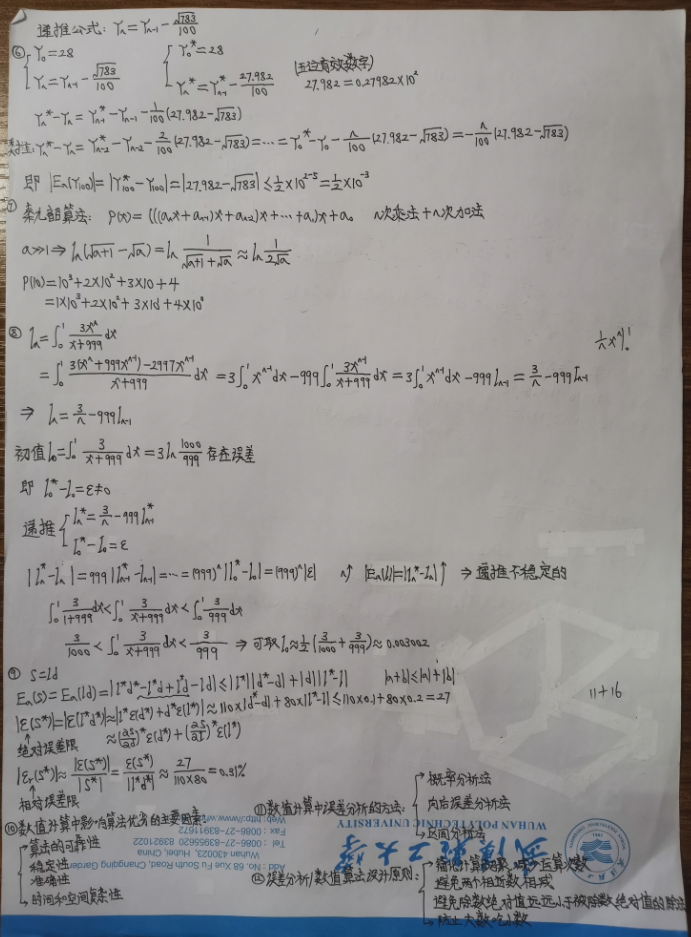 递推公式: Yₙ=Yₙ₋₁-√783/100
⑥ { Y₀=28 { Y₀*=28
Yₙ=Yₙ₋₁-√783/100 Yₙ*=Yₙ₋₁*-27.982/100 (五位有效数字) 27.982=0.27982×10²
Yₙ*-Yₙ=Yₙ₋₁*-Yₙ₋₁-1/100(27.982-√783)
Yₙ*-Yₙ=Yₙ₋₂*-Yₙ₋₂-2/100(27.982-√783)=⋯=Y₀*-Y₀-n/100(27.982-√783)=-n/100(27.982-√783)
即 |Eₙ(Y₁₀₀)|=|Y₁₀₀*-Y₁₀₀|=|27.982-√783|≤½×10²⁻⁵=½×10⁻³
⑦ 秦九韶算法: P(x)=(((aₙx+aₙ₋₁)x+aₙ₋₂)x+⋯+a₁)x+a₀ n次乘法+n次加法
a≫1⇒ln(√a+1-√a)=ln 1/(√a+1+√a)≈ln 1/(2√a)
P(10)=10³+2×10²+3×10+4
=1×10³+2×10²+3×10¹+4×10⁰
⑧ Iₙ=∫₀¹ 3xⁿ/(x+999) dx 1/n xⁿ|₀¹
=∫₀¹ (3(xⁿ+999xⁿ⁻¹)-2997xⁿ⁻¹)/(x+999) dx =3∫₀¹xⁿ⁻¹dx-999∫₀¹ 3xⁿ⁻¹/(x+999) dx=3∫₀¹xⁿ⁻¹dx-999Iₙ₋₁=3/n-999Iₙ₋₁
⇒ Iₙ=3/n-999Iₙ₋₁
初值I₀=∫₀¹ 3/(x+999) dx=3ln 1000/999 存在误差
即 I₀*-I₀=ε≠0
递推 { Iₙ*=3/n-999Iₙ₋₁*
I₀*-I₀=ε
|Iₙ*-Iₙ|=999|Iₙ₋₁*-Iₙ₋₁|=⋯=(999)ⁿ|I₀*-I₀|=(999)ⁿ|ε| n↑ |Eₙ(I)|=|Iₙ*-Iₙ|↑ ⇒递推不稳定的
∫₀¹ 3/(1+999) dx<∫₀¹ 3/(x+999) dx<∫₀¹ 3/999 dx
3/1000<∫₀¹ 3/(x+999) dx<3/999 ⇒可取I₀≈½(3/1000+3/999)≈0.003002
⑨ S=ld
Eₙ(s)=Eₙ(ld)=|l*d*-l*d+l*d-ld|≤|l*||d*-d|+|d||l*-l| |a+b|≤|a|+|b|
|ε(s*)|=|ε(l*d*)|≈|l*ε(d*)+d*ε(l*)|≈110×|d*-d|+80×|l*-l|≤110×0.1+80×0.2=27 11+16
绝对误差限 ≈(∂s/∂d)*ε(d*)+(∂s/∂l)*ε(l*)
|εᵣ(s*)|≈|ε(s*)|/|s*|=ε(s*)/|l*d*|≈27/(110×80)≈0.31%
相对误差限
⑩ 数值计算中影响算法优劣的主要因素:
算法的可靠性
稳定性
准确性
时间和空间复杂性
⑪ 数值计算中误差分析的方法:
概率分析法
向后误差分析法
区间分析法
⑫ 误差分析/数值算法设计原则:
简化计算步骤,减少运算次数
避免两个相近数相减
避免除数绝对值远远小于被除数绝对值的除法
防止大数吃小数
武汉轻工大学
WUHAN POLYTECHNIC UNIVERSITY
Add: No.68, Xue Fu South Road, Changqing Garden
Wuhan 430023, Hubei, China
Tel : 0086-27-83955627 83921022
Fax : 0086-27-83911672